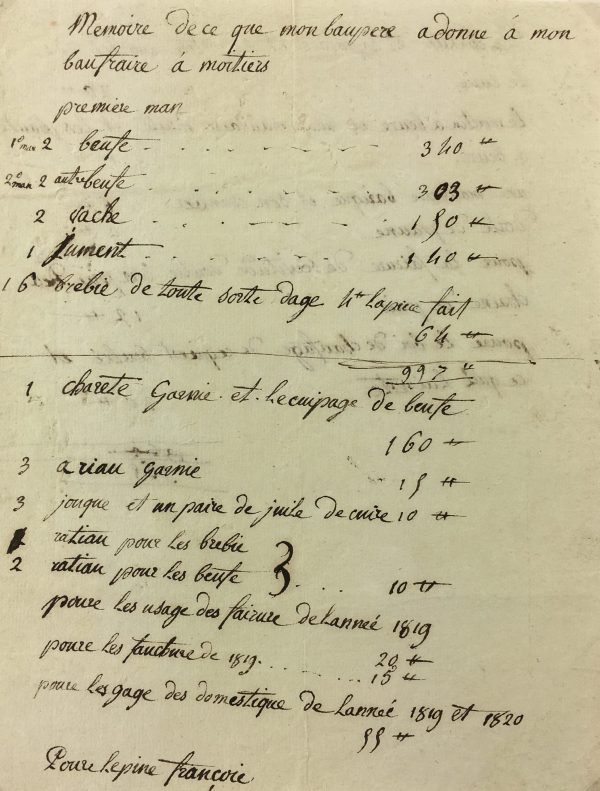 Memoire de ce que mon baupere a donne á mon
baufraire á moitiers
premiere man
1e man 2 beufe 340 ₶
2e man 2 autre beufe 303 ₶
2 vache 150 ₶
1 Jument 140 ₶
16 brebie de toute sorte dage 4₶ lapiece fait
64 ₶
997 ₶
1 charete Garnie et lecuipage de beufe
160 ₶
3 ariau garnie
15 ₶
3 jouque et un paire de juile de cuire 10 ₶
ratian pour les brebie
2 ratian pour les beufe 10 ₶
poure les usage des fairure de lanneé 1819
20 ₶
poure les faucture de 1819 15 ₶
poure les gage des domestique de lanneé 1819 et 1820
55 ₶
Poure lepine françoie